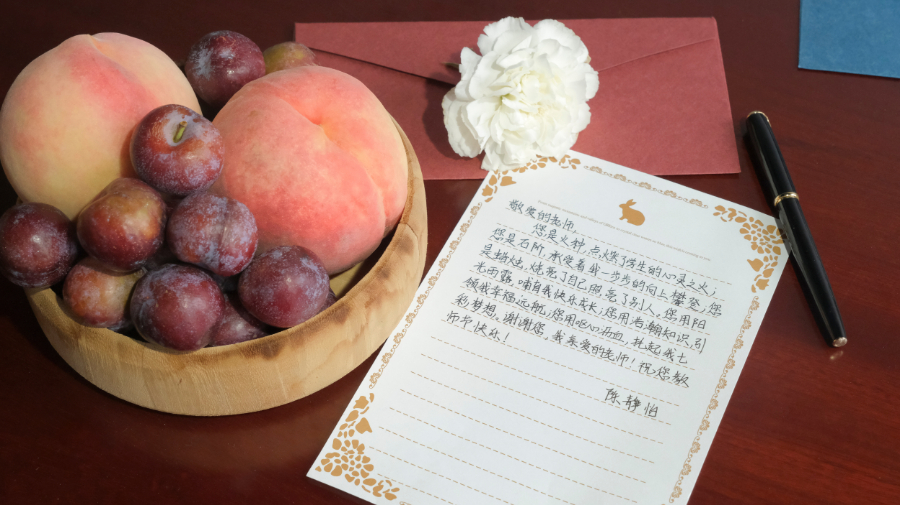 敬爱的老师,
您是火种,点燃了学生的心灵之火;
您是石阶,承受着我一步步的向上攀登,您
是蜡烛,烧亮了自己照亮了别人,您用阳
光雨露,哺育我快乐成长;您用知识,引
领我幸福远航,您用呕心沥血,托起我七
彩梦想,谢谢您,我亲爱的老师!祝您教
师节快乐!
陈静怡